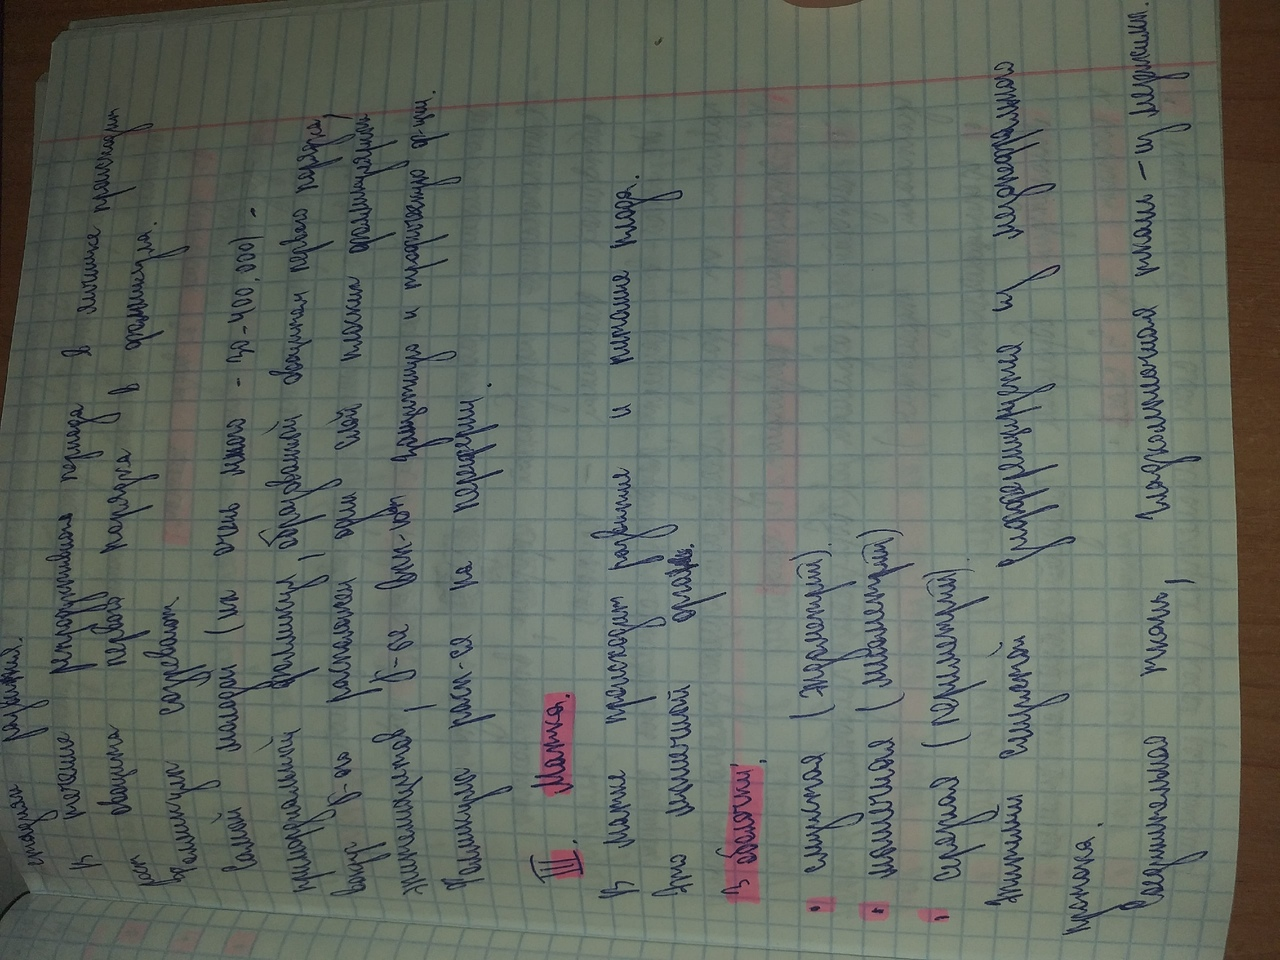 стадии развития.
В течение репродуктивного периода в яичнике происходит
рост овоцита первого порядка в фолликуле.
Фолликул созревают
самой молодой (их очень много - 30-400,000) -
примордиальный фолликул, образованный овоцитом первого порядка,
вокруг б-ого расположен один слой плоских фолликулярных
эпителиоцитов, б-ые вып-ют защитную и трофическую ф-ции.
Фолликулы расп-ся на периферии.
III. Матка.
В матке происходит развитие и питание плода.
Это мышечный орган.
3 оболочки:
• слизистая (эндометрий).
• мышечная (миометрий)
• серозная (периметрий).
Эпителий слизистой дифференцируется из мезодермального
протока.
Соединительная ткань, гладкомышечная ткань - из мезенхимы.